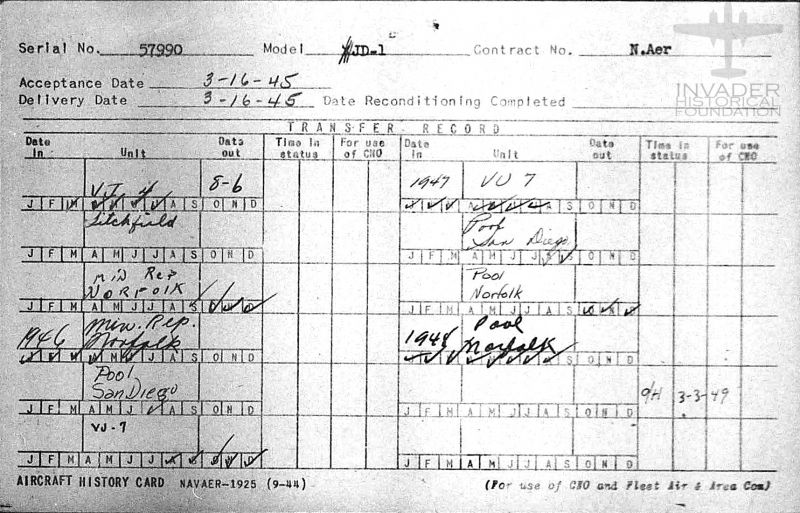 Serial No. 57990 Model JD-1 Contract No. N.Aer
INVADER
HISTORICAL
FOUNDATION
Acceptance Date 3-16-45
Delivery Date 3-16-45 Date Reconditioning Completed
TRANSFER RECORD
Date in Unit Data out Time in status For use of CNO Date in Unit Data out Time in status For use of CNO
VJ 4 8-6 1947 VU 7
J F M A M J J A S O N D J F M A M J J A S O N D
Litchfield Pool
San Diego
J F M A M J J A S O N D J F M A M J J A S O N D
min Rep Pool
NORFOLK Norfolk
J F M A M J J A S O N D J F M A M J J A S O N D
1946 Min. Rep. 1948 Pool
Norfolk Norfolk
J F M A M J J A S O N D J F M A M J J A S O N D
Pool
San Diego 3-3-49
J F M A M J J A S O N D J F M A M J J A S O N D
VJ-7
J F M A M J J A S O N D J F M A M J J A S O N D
AIRCRAFT HISTORY CARD NAVAER-1925 (9-44) (For use of CNO and Fleet Air & Area Com)